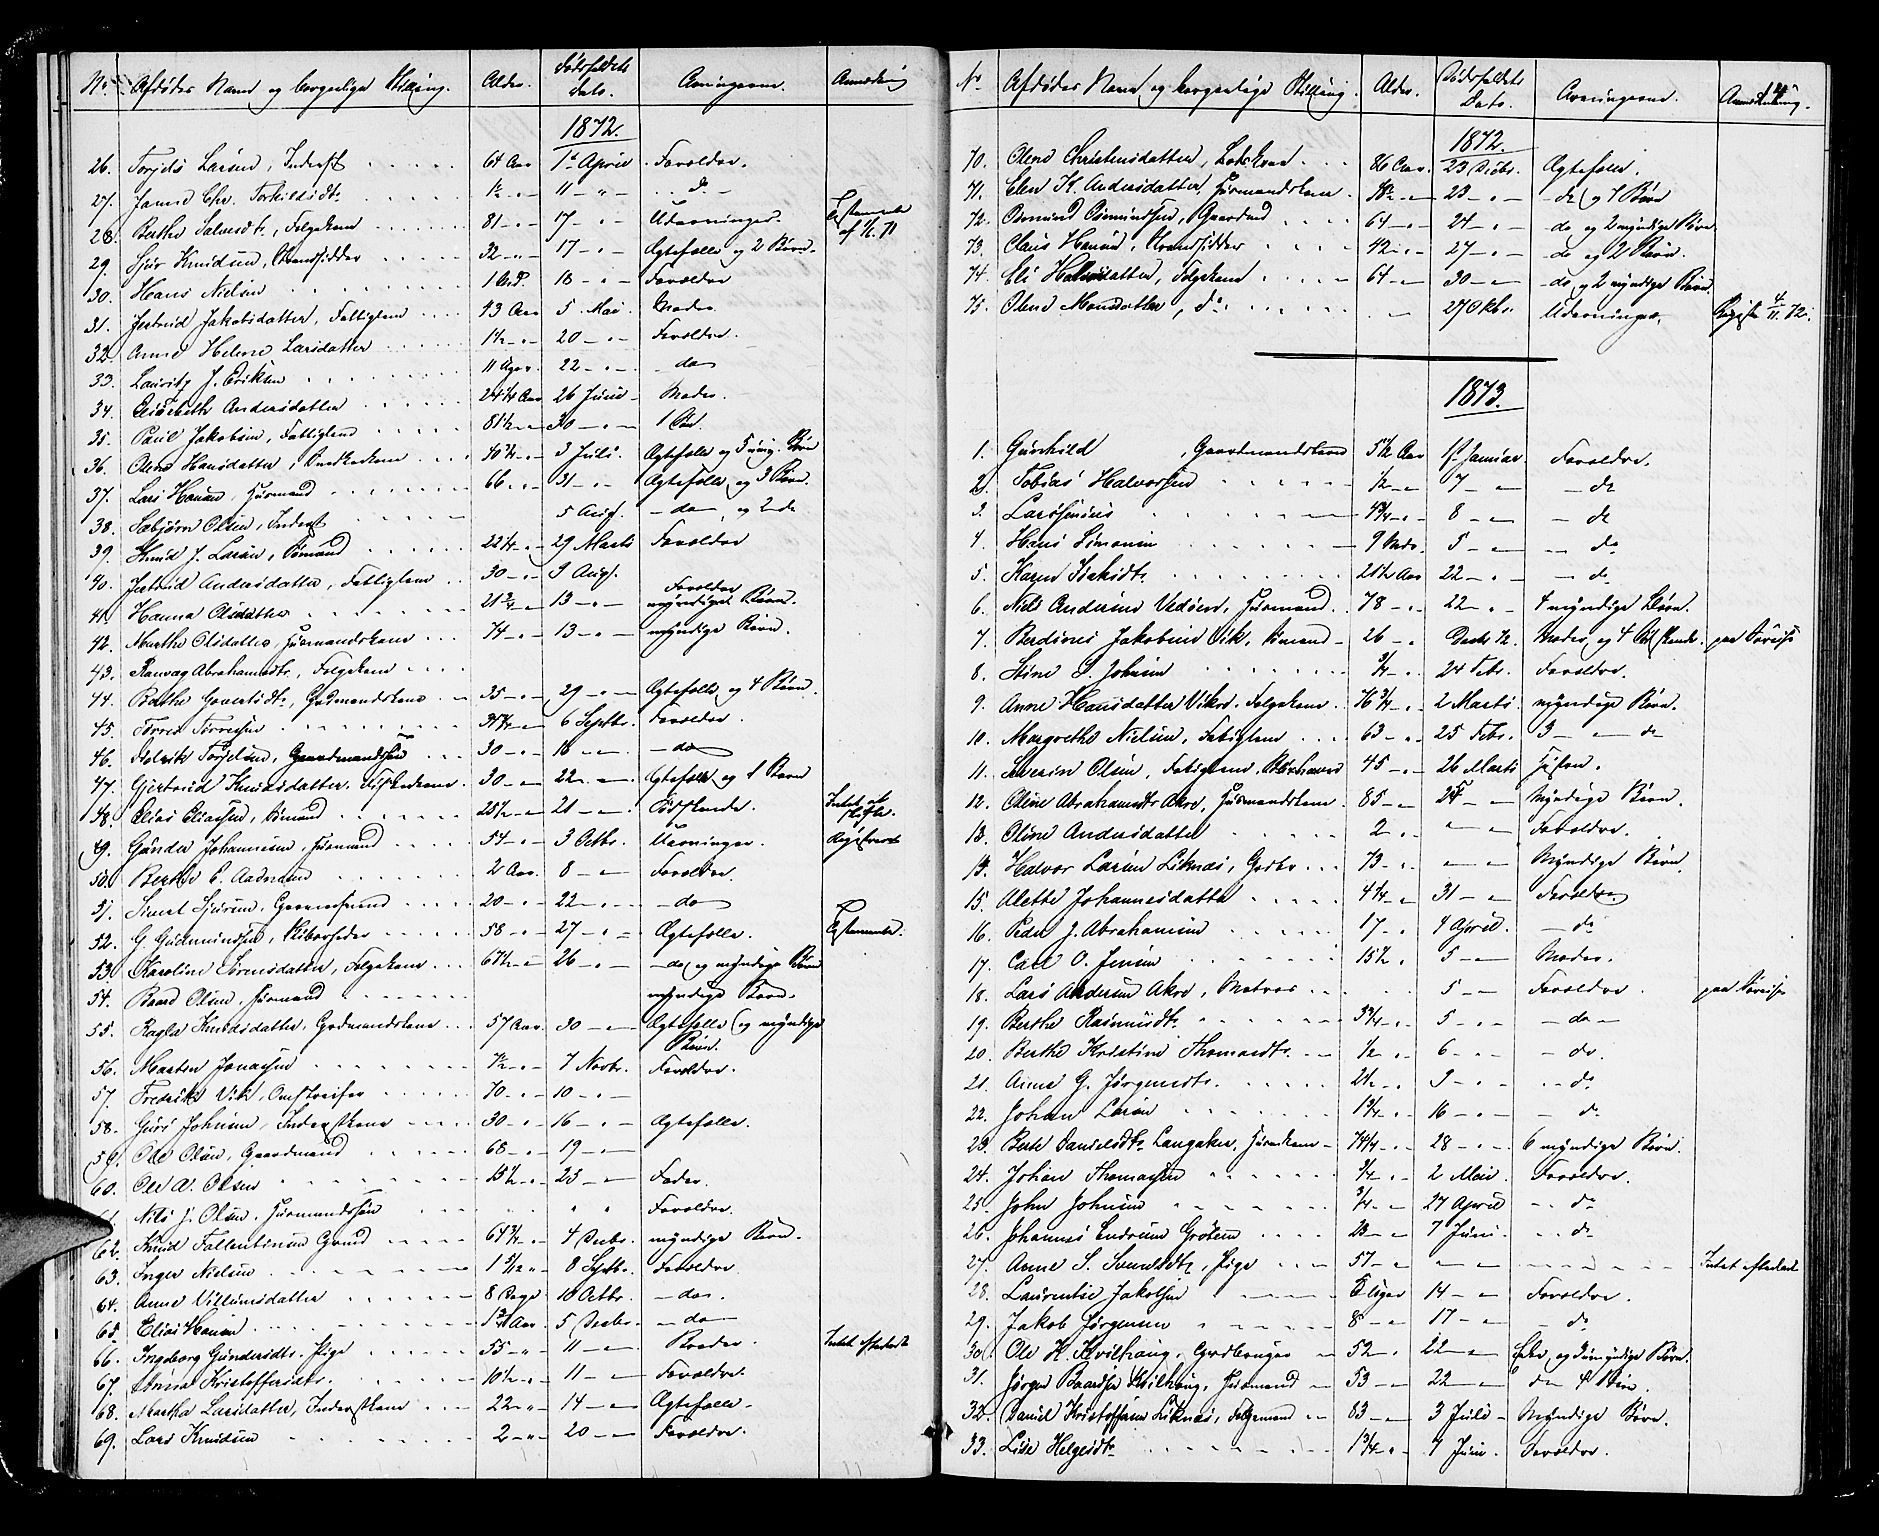 No. Afdødes Navn og borgerlige Stilling. Alder. Dødsfaldets Dato. Arvingerne. Anmerkning
1872.
26. Torjels Larsen, Inderst 64 Aar 1e April Forældre.
27. Janne Chr. Torkildsdtr 1½ - 11 - " - do -
28. Berthe Salvesdtr, Følgekone 81 - 17 - Udarvinger. Testamente af
29. Sjur Knudsen, Strandsidder 32 - " - 17 - Ægtefælle og 2 Børn.
30. Hans Nielsen 18 - " - Forældre
31. Jertrud Jakobsdatter, Fattiglem 43 Aar 5 Mai Moder.
32. Anne Helene Larsdatter 1½ - 20 - Forældre.
33. Lauritz J. Eriksen 11 Uger 22 - - do
34. Elisabeth Andersdatter 24¼ Aar 26 Juni - Moder.
35. Paul Jakobsen, Fattiglem 81½ - 30 - 1 Barn.
36. Olene Hansdatter, 40¾ - 3 Juli. Ægtefælle og 5 umy. Børn
37. Lars Hansen, Huusmand 66 - 31 - Ægtefælle og 3 Børn.
38. Asbjørn Olsen, Inderst 5 Aug. - do - og 2 do
39. Knud J. Larsen, Sømand 22¼ - 29 Marts Forældre
40. Jertrud Andersdatter, Fattiglem 30 - 9 Aug.
41. Hanna Olsdatter 21¾ - 13 - Forældre
42. Marthe Olsdatter, Huusmandskone 74 - 13 - myndige Børn.
43. Ranvaug Abrahamsdtr, Følgekone
44. Berthe Govertsdtr, Gaardmandskone 35 - 29 - Ægtefælle og 4 Børn.
45. Tørres Tørresen 6 Septbr. Forældre.
46. Torjelsen, Gaardmandssøn 30 - 16 - - do
47. Gjertrud Knudsdatter, Fiskerkone 30 - 22 - Ægtefælle og 1 Barn
48. Elias Eliassen, Sømand 25½ - 21 - Sødskende. Intet at skifte.
49. Gunder Johannesen, Huusmand 54 - 3 Octbr. Uarvinger. Registreret
50. Berthe C. Aadnesen 2 Aar 8 - Forældre.
51. Sivert Sjursen, 20 - 22 - - do
52. G. Gudmundsen, 58 - 27 - Ægtefælle. Testamente.
53. Karoline Sørensdatter, Følgekone 67½ - 26 - - do og myndige Børn
54. Baard Olsen, Huusmand myndige Børn.
55. Ragla Knudsdatter, Grdmandskone 57 Aar 30 - Ægtefælle (og myndige Børn.
56. Morten Jonassen 7½ - 7 Novbr. Forældre.
57. Fredrik Vik, Omstreifer 70 - 10 -
58. Guri Johnsen, Inderstkone 30 - 16 - Ægtefælle.
59. Ole Olsen, Gaardmand 68 - 19 -
60. Ole A. Olsen 15½ - 25 - Fader.
61. Nils J. Olsen, Huusmandssøn " " Forældre.
62. Knud Fallentinsen Grund 64¾ - 4 Decbr. myndige Børn.
63. Inger Nielsen 1 5/12 " 8 Septbr. Forældre.
64. Anne Villumsdatter 8 Dage 10 Octbr. - do.
65. Elias Hansen Aar 5 Decbr. - do -
66. Ingeborg Gundersdtr. Pige 55 - " 11 - Broder Intet efterladt
67. Kristoffersdtr. 10½ - 11 - Forældre.
68. Martha Larsdatter, Inderstkone 22 - " 14 - Ægtefælle.
69. Lars Knudsen 2 - " 20 - Forældre.
No Afdødes Navn og borgerlige Stilling. Alder. Dødsfaldets Dato. Arvingerne. Anmerkning.
1872.
70. Olene Christensdatter, Lodskone 86 Aar. 23 Decbr. Ægtefælle.
71. Elen K. Andersdatter, Huusmandskone 23 - - do og 1 Barn
72. Osmund Osmundsen, Gaardmd 64 - 24 - do og 2 myndige Børn.
73. Claus Hansen, Strandsidder 42 - 27 - do og 2 Børn.
74. Eli Halvorsdatter, Følgekone 64 - 30 - do og 2 myndige Børn
75. Olene Monsdatter, do. - 27 Okbr. Udarvinger. Registr 4/11. 72.
1873.
1. Gunhild , Gaardmandskone Aar 1 Januar Forældre.
2. Tobias Halvorsen ½ - 7 - - do
3. 8 - - do
4. Hans Simonsen 9 Mdr. 5 - - do
5. Karen Isaksdtr 21½ Aar 22 - - do
6. Niels Andersen Vedøen, Huusmand 78 - 22 - 4 myndige Børn.
7. Berdines Jakobsen Vik, Sømand 26 - Moder og 4 Sødskende. paa Søreise
8. Stine S. Johnsen ¾ - 24 Febr. Forældre.
9. Anne Hansdatter Vikre, Følgekone 76¾ - 2 Marts myndige Børn.
10. Margrethe Nielsen, Fatiglem 63 - 25 Febr. 3 - do
11. Severin Olsen, Fatiglem, 45 - 26 Marts Søsteren.
12. Oline Abrahamsdtr Akre, Huusmandskone 85 - - Myndige Børn.
13. Oline Andersdatter 2 - - - Forældre.
14. Halvor Larsen Liknæs, Grdbr 73 - - - Myndige Børn.
15. Alette Johannesdatter 4¼ - 31 - Forældre
16. Peder J. Abrahamsen 17 - 4 April - do
17. Carl O. Jensen 15½ - 5 - Moder.
18. Lars Andersen Akre, Matros 5 - Forældre. paa Søreise
19. Berthe Rasmusdtr. 3¾ - 5 - - do -
20. Berthe Kristine Thomasdtr. ½ - 6 - - do.
21. Anne G. Jørgensdtr. 2½ - 9 - - do
22. Johan Larsen 1¾ - 16 - - do
23. Berte Danielsdtr Langaker, Huusmkone - 74¼ - 28 - 6 myndige Børn.
24. Johan Thomassen ¾ - 2 Mai Forældre.
25. John Johnsen ¾ - 27 April - do
26. Johannes Endresen Grøtem 23 - 7 Juni - do
27. Anne S. Svendsdtr, Pige 57 - - - - Intet efterladt
28. Laurentse Jakobsen 5 Uger 14 - Forældre.
29. Jakob Jørgensen 8 - 17 - - do
30. Ole H. Kvilhaug, Grdbruger 52 - 22 - Enke og 3 umyndige Børn.
31. Jørgen Baardsen Kvilhaug, Huusmand 53 - 22 - do 4 Børn.
32. Daniel Kristoffersen Liknæs, Følgemand 83 - 3 Juli - Myndige Børn.
33. Lise Helgesdtr 1¾ - 7 Juni - Forældre.